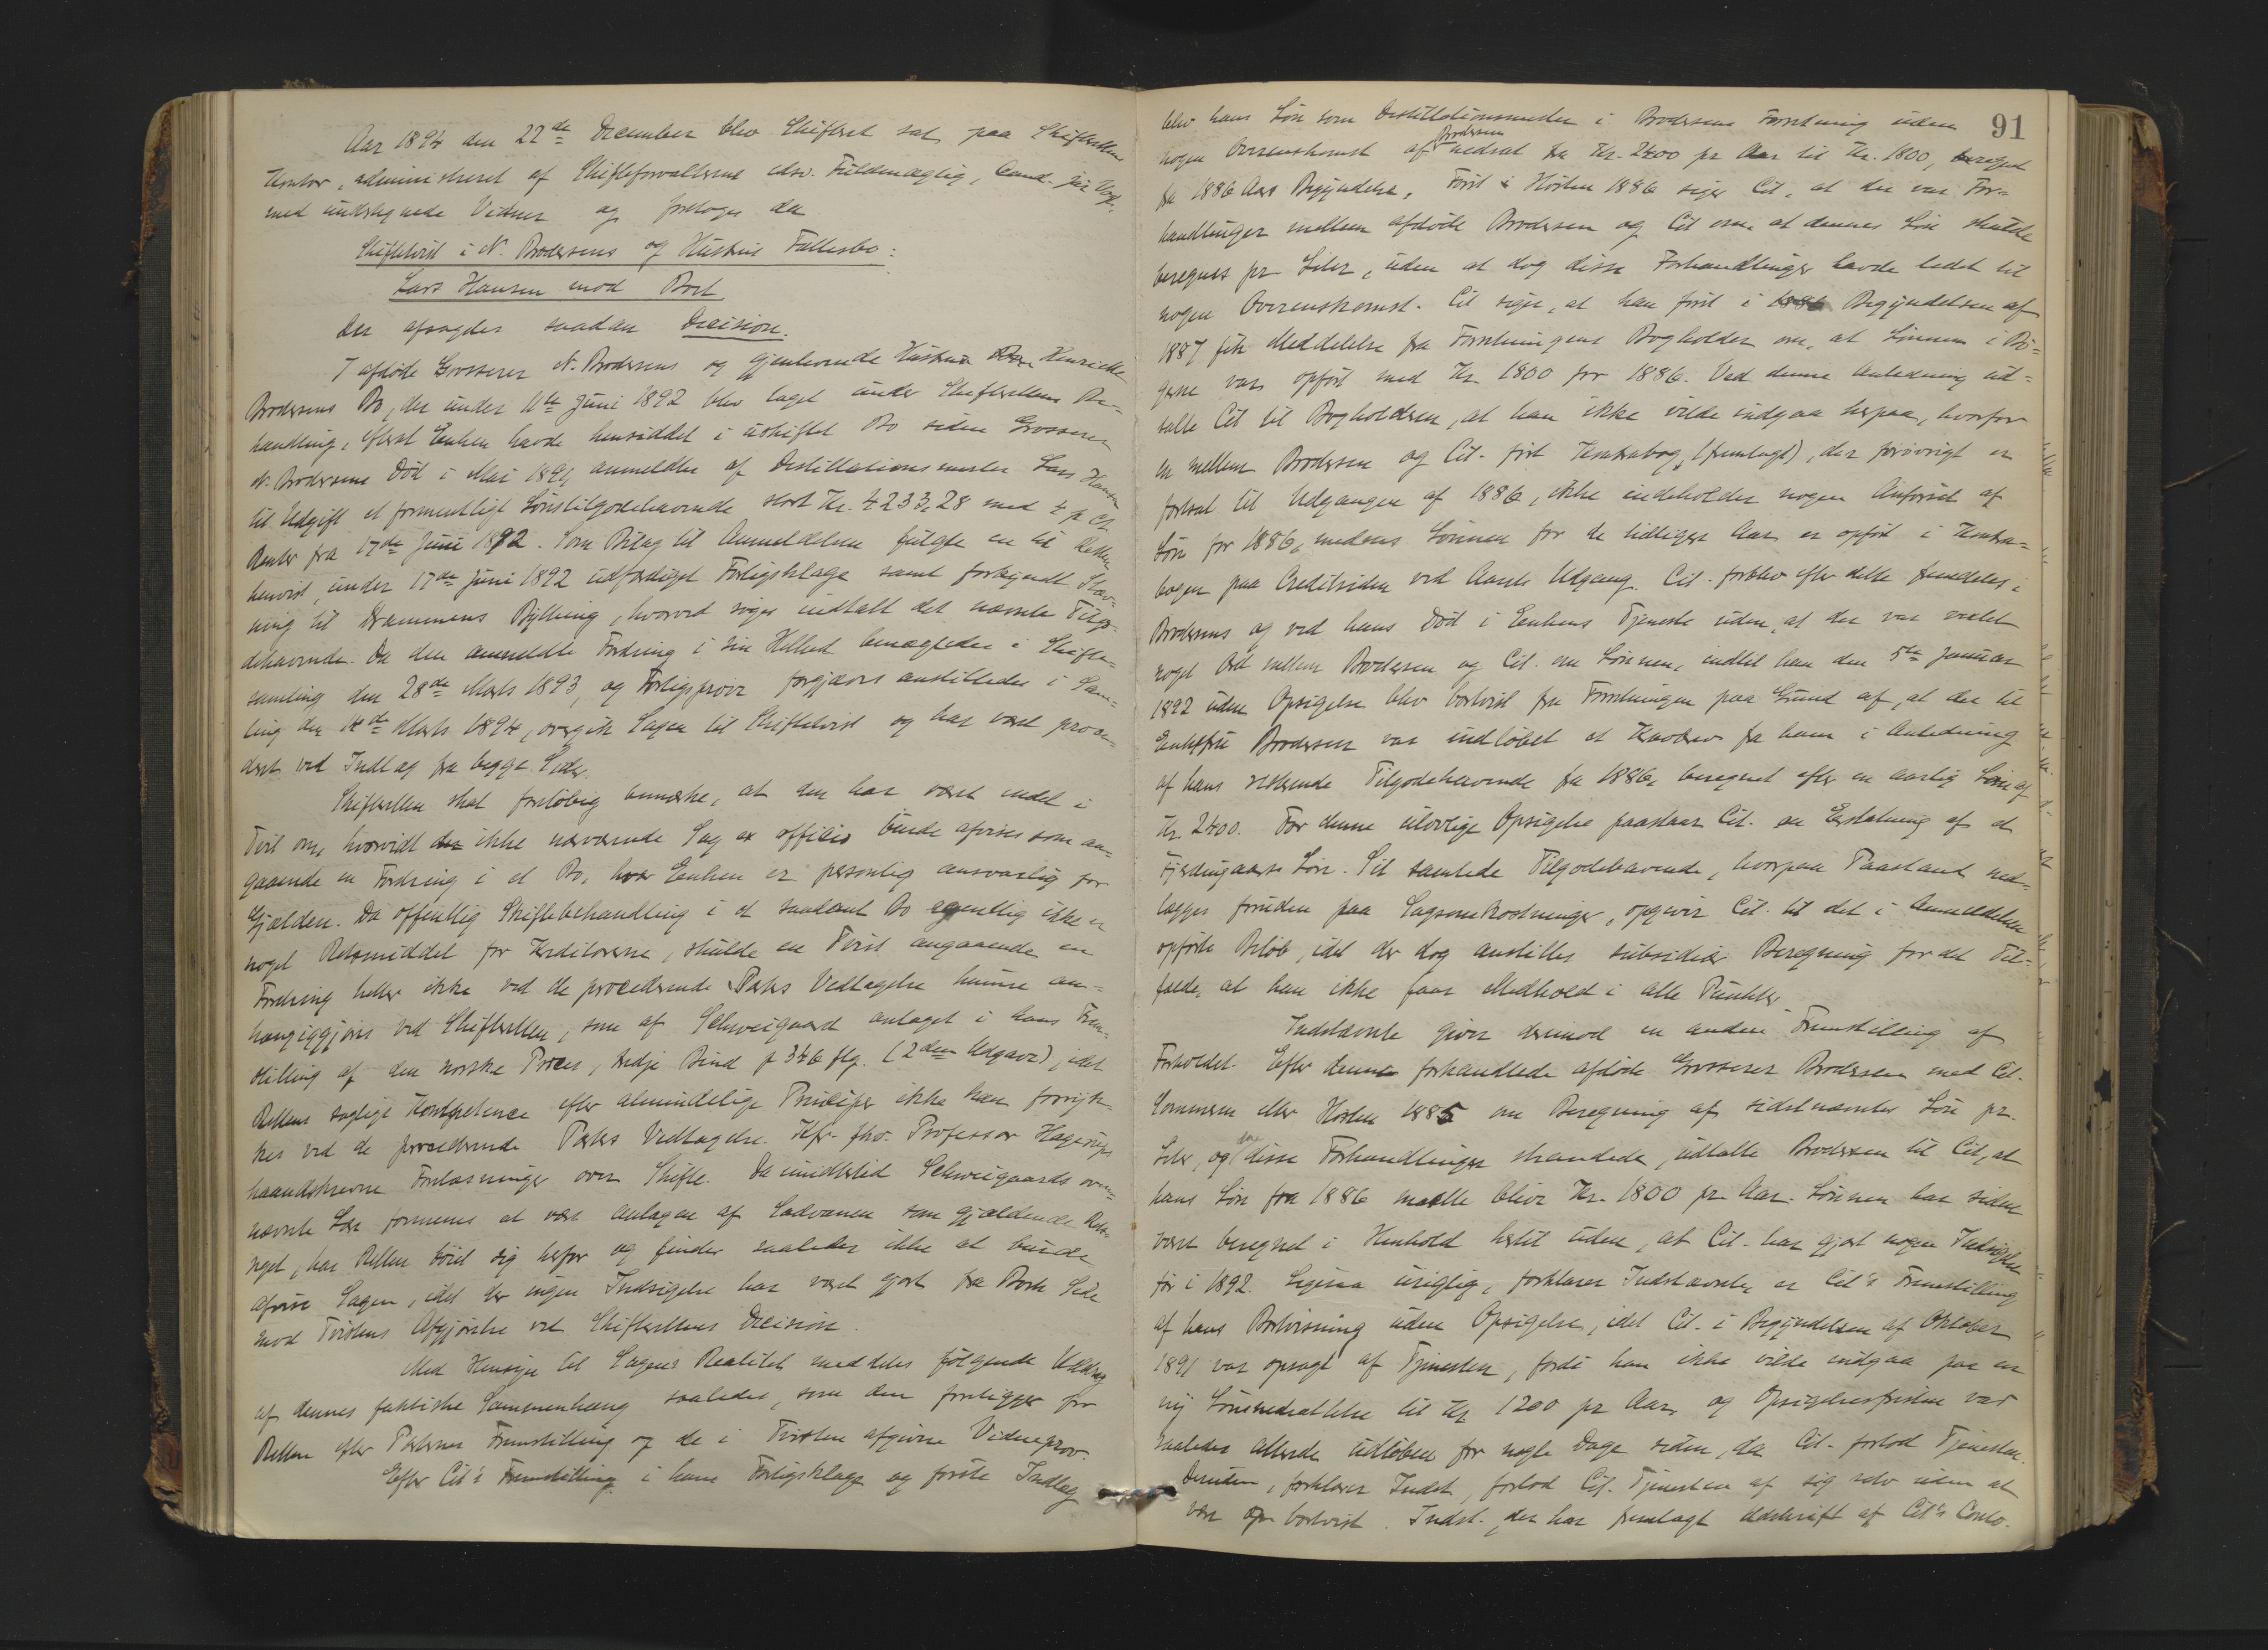 Aar 1894 den 22de December blev Skifteret sat paa Skifterettens
Kontor, administreret af Skifteforvalterens edsv. Fuldmægtig, Cand. jur.
med undertegnede Vidner og foretoges da
Skiftetvist i N. Brodersens og Hustrus Fællesbo:
Lars Hansen mod Boet.
Der afsagdes saadan Decision.
I afdøde Grosserer N. Brodersens og gjenlevende Hustru Henriette
Brodersens Bo, der under 11te Juni 1892 blev taget under Skifterettens Be-
handling, efterat Enken havde hensiddet i uskiftet Bo siden Grosserer
N. Brodersens Död i Mai 1891 anmeldtes af Destillationsmester Lars Hansen
til Udgift et formentligt Lønstilgodehavende stort Kr. 4233,28 med 4 p Ct
Renter fra 17de Juni 1892. Som Bilag til Anmeldelsen fulgte en til Retten
henvist, under 17de Juni 1892 udfærdiget Forligsklage samt forkyndt Stæv-
ning til Drammens Bything, hvorved søges indtalt det nævnte Tilgo-
dehavende. Da den anmeldte Fordring i sin Helhed benægtedes i Skifte-
samling den 28de Marts 1893, og Forligsprøve forgjæves anstilledes i Sam-
ling den 14de Marts 1894, overgik Sagen til Skiftetvist og har været proce-
deret ved Indlæg fra begge Sider.
Skifteretten skal foreløbig bemærke, at den har været endel i
Tvil om, hvorvidt ikke nærværende Sag ex officio burde afvises som an-
gaaende en Fordring i et Bo, hvor Enken er personlig ansvarlig for
Gjælden. Da offentlig Skiftebehandling i et saadant Bo egentlig ikke er
noget Retsmiddel for Kreditorerne, skulde en Tvist angaaende en
Fordring heller ikke ved de procederende Parters Vedtagelse kunne an-
hængiggjøres ved Skifteretten, som af Schweigaard antaget i hans Frem-
stilling af den norske Proces, tredje Bind p 346 flg. (2den Udgave), idet
Rettens saglige Kompetence efter almindelige Principer ikke kan forryk-
kes ved de procederende Parters Vedtagelse. Kfr. fhv. Professor Hagerups
haandskrevne Forelæsninger over Skifte. Da imidlertid Schweigaards oven-
nævnte Lære formenes at være antagen af Sædvanen som gjældende Rets-
regel, har Retten bøiet sig herfor og finder saaledes ikke at burde
afvise Sagen, idet der ingen Indsigelse har været gjort fra Boets Side
mod Tvistens Afgjørelse ved Skifterettens Decision.
Med Hensyn til Sagens Realitet meddeles følgende Uddrag
af dennes faktiske Sammenhæng saaledes, som den foreligger for
Retten efter Parternes Fremstilling og de i Tvisten afgivne Vidneprov.
Efter Cit's Fremstilling i hans Forligsklage og første Indlæg
91
blev hans Løn som Destillationsmester i Brodersens Forretning uden
nogen Overenskomst af Brodersen nedsat fra Kr. 2400 pr Aar til Kr. 1800, beregnet
fra 1886 Aars Begyndelse. Først i Høsten 1886 siger Cit. at der var For-
handlinger mellem afdøde Brodersen og Cit om, at dennes Løn skulde
beregnes pr Liter, uden at dog disse Forhandlinger havde ledet til
nogen Overenskomst. Cit siger, at han først i Begyndelsen af
1887 fik Meddelelse fra Forretningens Bogholder om, at Lønnen i Bø-
gerne var opført med Kr. 1800 for 1886. Ved denne Anledning ud-
talte Cit til Bogholderen, at han ikke vilde indgaa herpaa, hvorfor
en mellem Brodersen og Cit. ført Kontrabog, (fremlagt), der forøvrigt er
fortsat til Udgangen af 1886, ikke indeholder nogen Anførsel af
Løn for 1886, medens Lønnen for de tidligere Aar er opført i Kontra-
bogen paa Creditsiden ved Aarets Udgang. Cit. forblev efter dette fremdeles i
Brodersens og ved hans Død i Enkens Tjeneste uden, at der var vexlet
noget Ord mellem Brodersen og Cit. om Lønnen, indtil han den 5te Januar
1892 uden Opsigelse blev bortvist fra Forretningen paa Grund af, at der til
Enkefru Brodersen var indløbet et Kravbrev fra ham i Anledning
af hans resterende Tilgodehavende fra 1886, beregnet efter en aarlig Løn af
Kr. 2400. For denne ulovlige Opsigelse paastaar Cit. en Erstatning af et
Fjerdingaars Løn. Sit samlede Tilgodehavende, hvorpaa Paastand ned-
lægges foruden paa Sagsomkostninger, opgiver Cit. til det i Anmeldelsen
opførte Beløb, idet der dog anstilles subsidiær Beregning for det Til-
fælde, at han ikke faar Medhold i alle Punkter.
Indstævnte giver derimod en anden Fremstilling af
Forholdet. Efter denne forhandlede afdøde Grosserer Brodersen med Cit.
Sommeren eller Høsten 1885 om Beregning af sidstnævntes Løn pr.
Liter, og da disse Forhandlinger strandede, udtalte Brodersen til Cit, at
hans Løn fra 1886 maatte blive Kr. 1800 pr. Aar. Lønnen har siden
været beregnet i Henhold hertil uden, at Cit. har gjort nogen Indsigelse
før i 1892. Ligesaa urigtig, forklarer Indstævnte, er Cit's Fremstilling
af hans Bortvisning uden Opsigelse, idet Cit. i Begyndelsen af Oktober
1891 var opsagt af Tjenesten, fordi han ikke vilde indgaa paa en
ny Lønsnedsættelse til Kr 1200 pr Aar, og Opsigelsesfristen var
saaledes allerede udløben for nogle Dage siden, da Cit. forlod Tjenesten.
Desuden, forklarer Indst, forlod Cit. Tjenesten af sig selv uden at
være bortvist. Indst., der har fremlagt Udskrift af Cit's Conto.